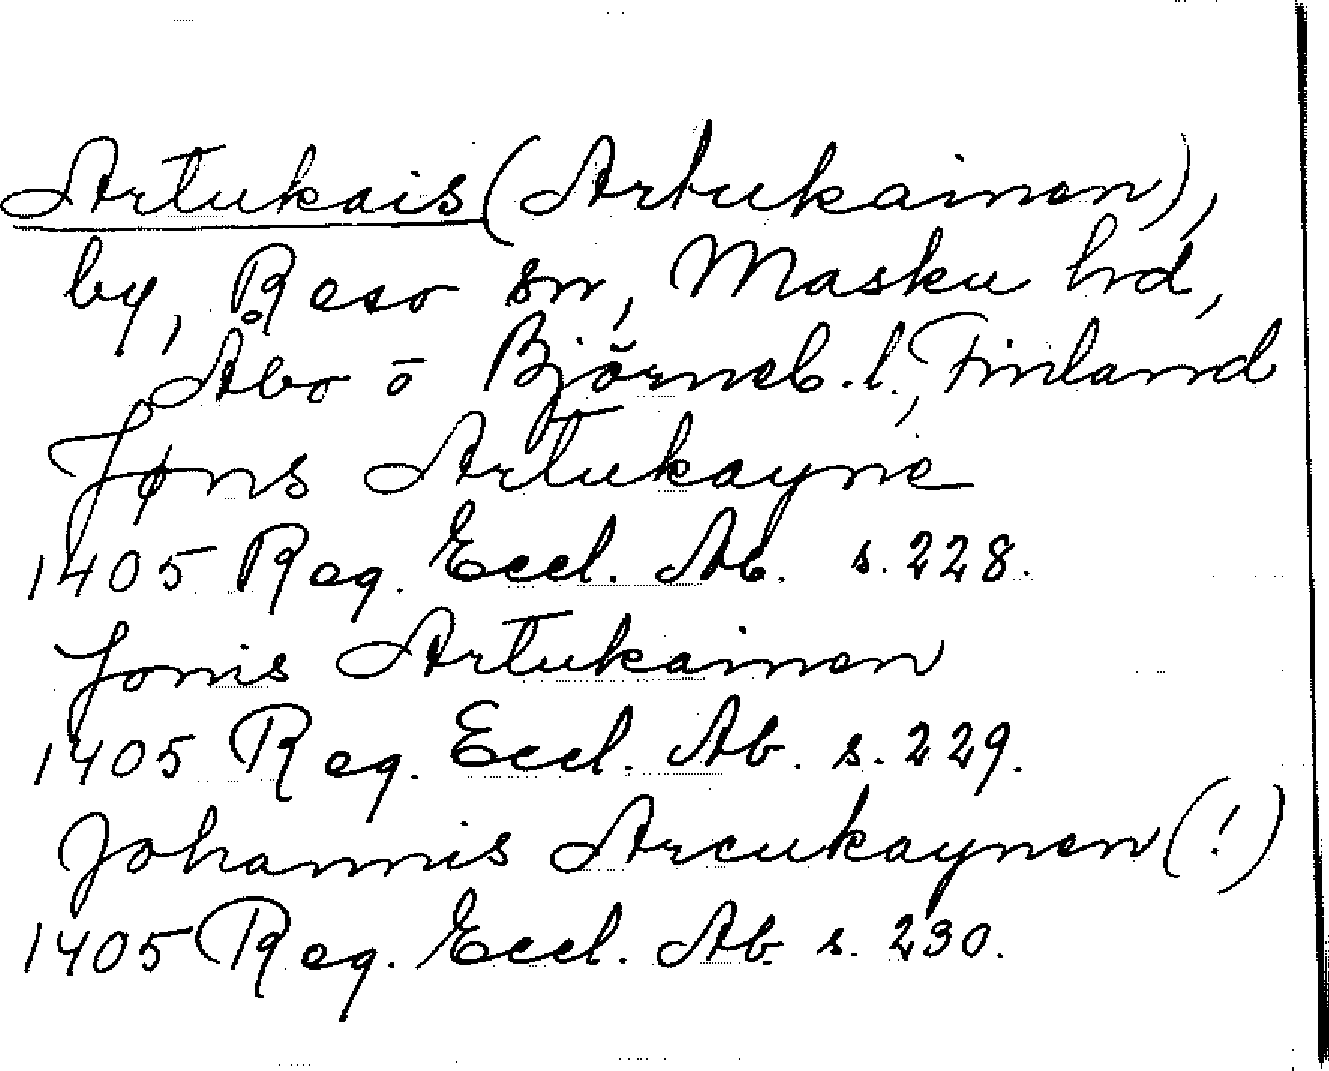 Artukais (Artukainen),
by, Reso sn, Masku hrd,
Åbo o Björneb. l., Finland
Jøns Artukayne
1405 Reg. Eccl. Ab. s. 228.
Jonis Artukainen
1405 Reg. Eccl. Ab. s. 229.
Johannis Arcukaynen (!)
1405 Reg. Eccl. Ab s. 230.